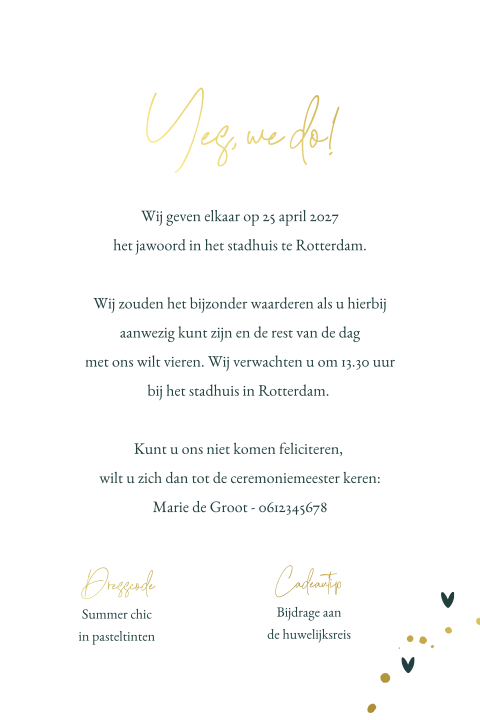 Yes, we do!
Wij geven elkaar op 25 april 2027
het jawoord in het stadhuis te Rotterdam.
Wij zouden het bijzonder waarderen als u hierbij
aanwezig kunt zijn en de rest van de dag
met ons wilt vieren. Wij verwachten u om 13.30 uur
bij het stadhuis in Rotterdam.
Kunt u ons niet komen feliciteren,
wilt u zich dan tot de ceremoniemeester keren:
Marie de Groot - 0612345678
Dresscode
Summer chic
in pasteltinten
Cadeautip
Bijdrage aan
de huwelijksreis